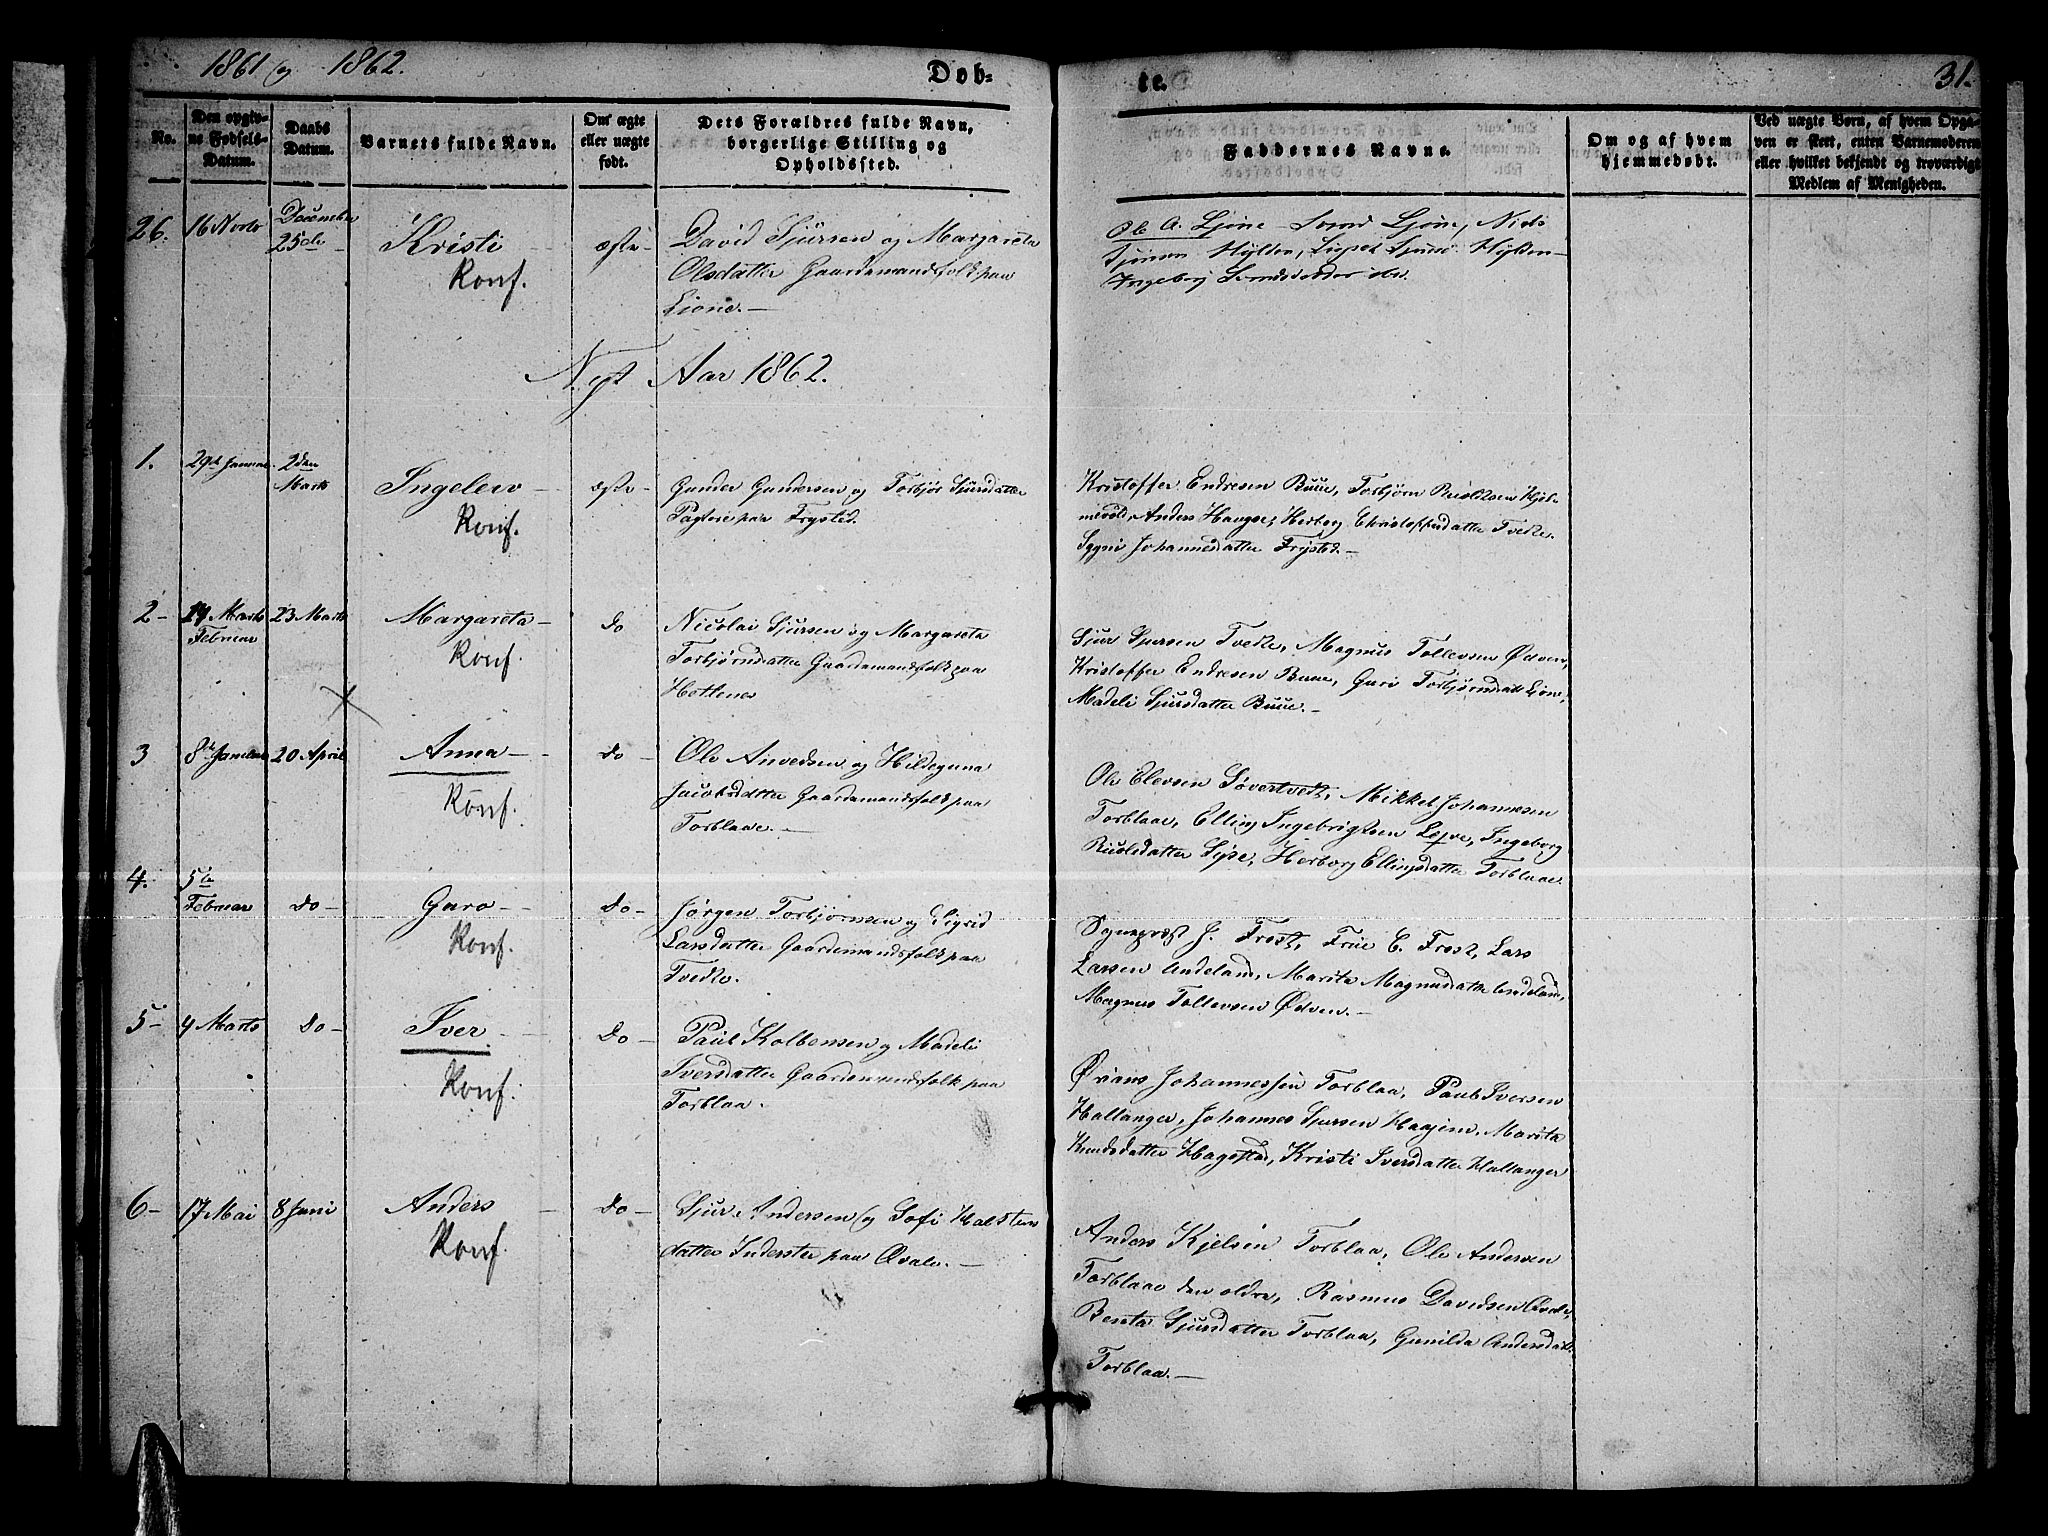 1861 og 1862.
Døb-
te.
31.
No.
Den opgiv-
ne Fødsels-
Datum.
Daabs
Datum.
Barnets fulde Navn.
Om ægte
eller uægte
født.
Dets Forældres fulde Navn,
borgerlige Stilling og
Opholdssted.
Faddernes Navne.
Om og af hvem
hjemmedøbt.
Ved uægte Børn, af hvem Opga-
ven er skeet, enten Barnemoderen
eller hvilket bekjendt og troværdigt
Medlem af Menigheden.
26.
16 Novbr
December
25de
Kristi
Konf.
ægte
David Sjursen og Margareta
Olsdatter Gaardsmandsfolk paa
Lione.
Ole A. Ljone Ljone, Niels
Hylten
Ingeborg
Nyt Aar 1862.
1.
29de Januar
2den
Marts
Ingelev
Konf.
ægte
Gunder Gundersen og Torbjør Sjursdatter
paa Frysted.
Kristoffer Endresen Buue, Torbjørn Hjel-
mevold, Anders Haugse, Herborg Christoffersdatter Tvedte.
Sygni Johannesdatter Frysted.
2
Marts
Februar
23 Marts
Margareta
Konf.
Do
Nicolai Sjursen og Margareta
Torbjørnsdatter Gaardsmandsfolk paa
Hottenes
Sjur Sjursen Tvedte, Magnus Tollevsen Ødven,
Kristoffer Endresen Buue, Guri Torbjørnsdatt Lione,
Madeli Sjursdatter Buue.
3
8de Januar
20 April
Anna
Konf.
Do
Ole Anvedsen og Hildeguna
Jacobsdatter Gaardsmandsfolk paa
Torblaae.
Ole Elevsen Søvertvedt, Mikkel Johannesen
Torblaae, Elling Ingebrigtsen Lejve, Ingeborg
Sysse, Herborg Ellingsdatter Torblaae.
4.
5te
Februar
Do
Guro
Konf.
Do
Jørgen Torbjørnsen og Sigrid
Larsdatter Gaardsmandsfolk paa
Tvedte.
Sognepræst J. Frost, Frue C. Frost, Lars
Larsen Andeland, Marita Magnusdatter Andeland,
Magnus Tollevsen Ødven.
5
4 Marts
Do
Iver
Konf.
Do
Paul Kolbensen og Madeli
Iversdatter Gaardsmandsfolk paa
Torblaa.
Johannessen Torblaa, Paul Iversen
Hallanger, Johannes Sjursen Haajem, Marita
Knudsdatter Hagestad, Kristi Iversdatter Hallanger
6
17 Mai
8 Juni
Anders
Konf.
Do
Sjur Andersen og Sofi Halstens
datter Inderster paa Qvale.
Anders Kjelsen Torblaa, Ole Andersen
Torblaae den ældre, Rasmus Davidsen Qvale,
Benta Sjursdatter Torblaa, Gunilda Andersdatt.
Torblaa.